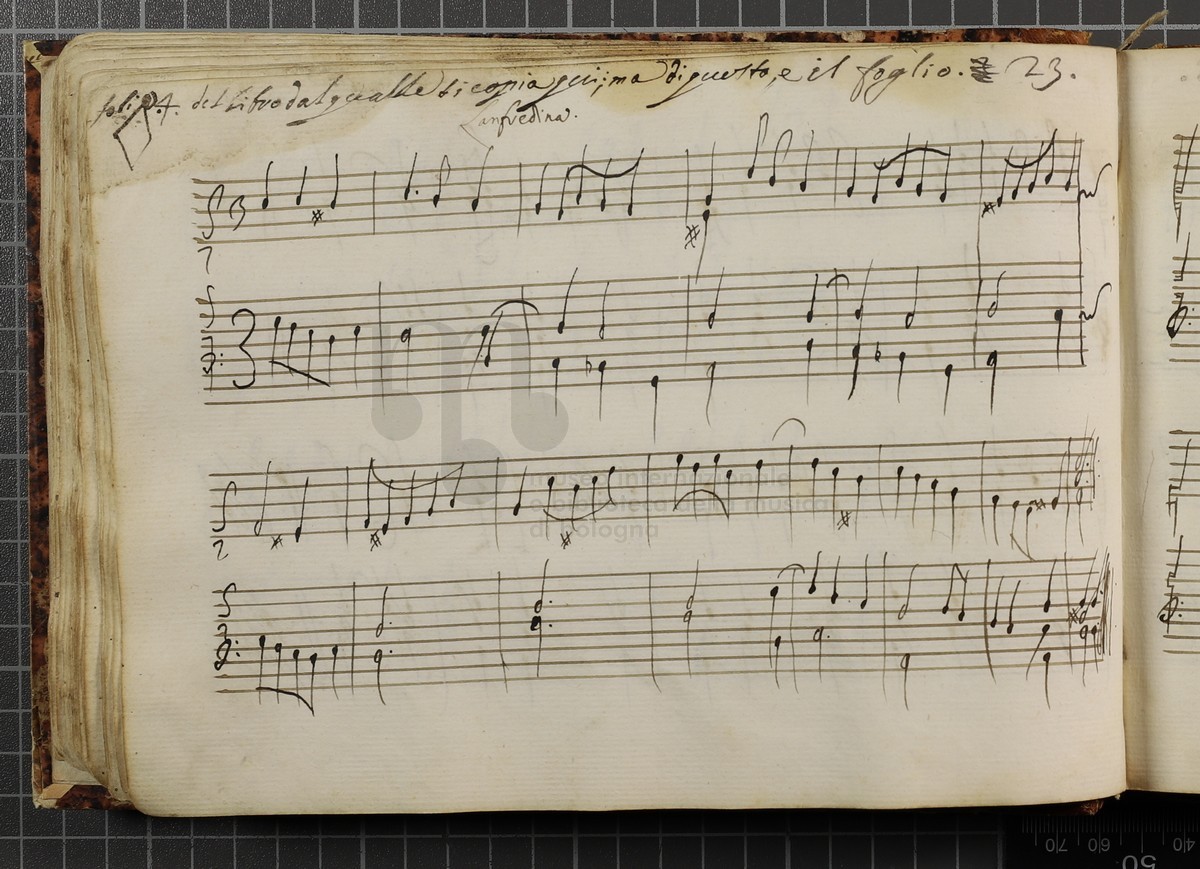 del libro dal qualle si copia prima di questo, e il foglio. 23.
Lanfredina.
3
3
museo internazionale
e biblioteca della musica
di bologna
70 60 50 40